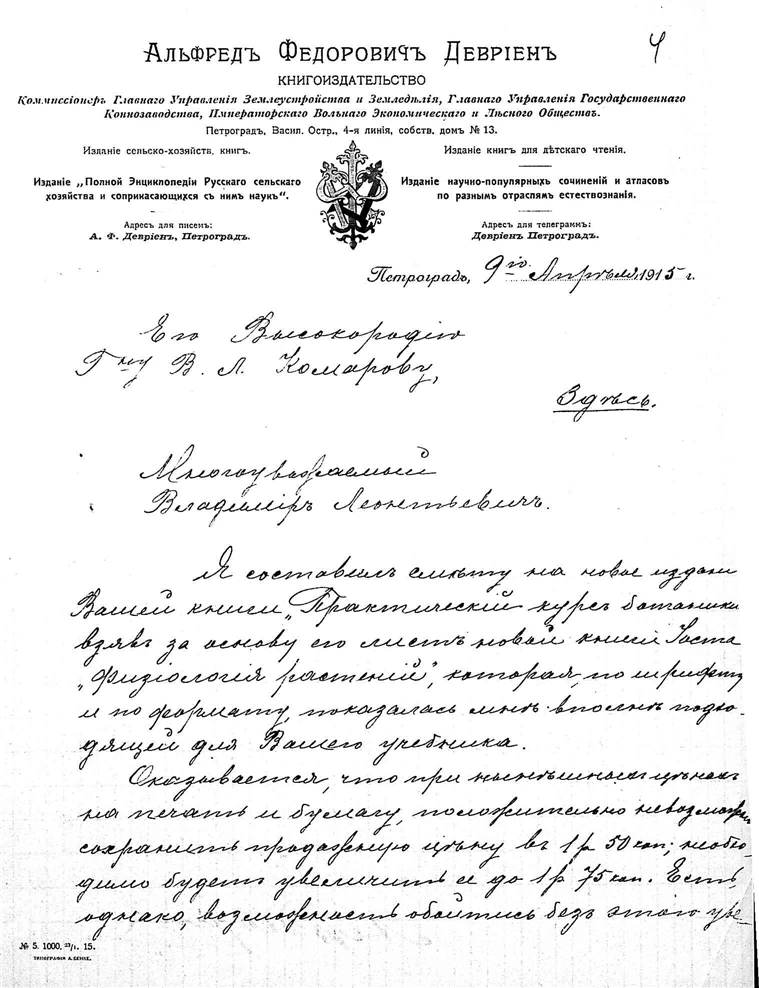 4
Альфредъ Федоровичъ Девріенъ
КНИГОИЗДАТЕЛЬСТВО
Коммиссіонеръ Главнаго Управленія Землеустройства и Земледѣлія, Главнаго Управленія Государственнаго
Коннозаводства, Императорскаго Вольнаго Экономическаго и Лѣсного Обществъ.
Петроградъ, Васил. Остр., 4-я линія, собств. домъ № 13.
Изданіе сельско-хозяйств. книгъ.
Изданіе „Полной Энциклопедіи Русскаго сельскаго
хозяйства и соприкасающихся съ нимъ наукъ“.
Адресъ для писемъ:
А. Ф. Девріенъ, Петроградъ.
Изданіе книгъ для дѣтскаго чтенія.
Изданіе научно-популярныхъ сочиненій и атласовъ
по разнымъ отраслямъ естествознанія.
Адресъ для телеграммъ:
Девріенъ Петроградъ.
Петроградъ, 9го Апрѣля 1915 г.
Его Высокородію
Гну В. Л. Комарову,
Здѣсь.
Многоуважаемый
Владиміръ Леонтьевичъ.
Я составилъ смѣту на новое издані
Вашей книги „Практическій курсъ ботаники
взявъ за основу его листъ новой книги Іоста
„Физіологія растеній“, которая, по шрифту
и по формату, показалась мнѣ вполнѣ подхо-
дящей для Вашего учебника.
Оказывается, что при нынѣшнихъ цѣнахъ
на печать и бумагу, положительно невозможн
сохранить продажную цѣну въ 1 р 50 коп; необхо-
димо будетъ увеличить ее до 1 р 75 коп. Есть,
однако, возможность обойтись безъ этого уве-
№ 5. 1000. 23/I. 15.
ТИПОГРАФІЯ А. БЕНКЕ.